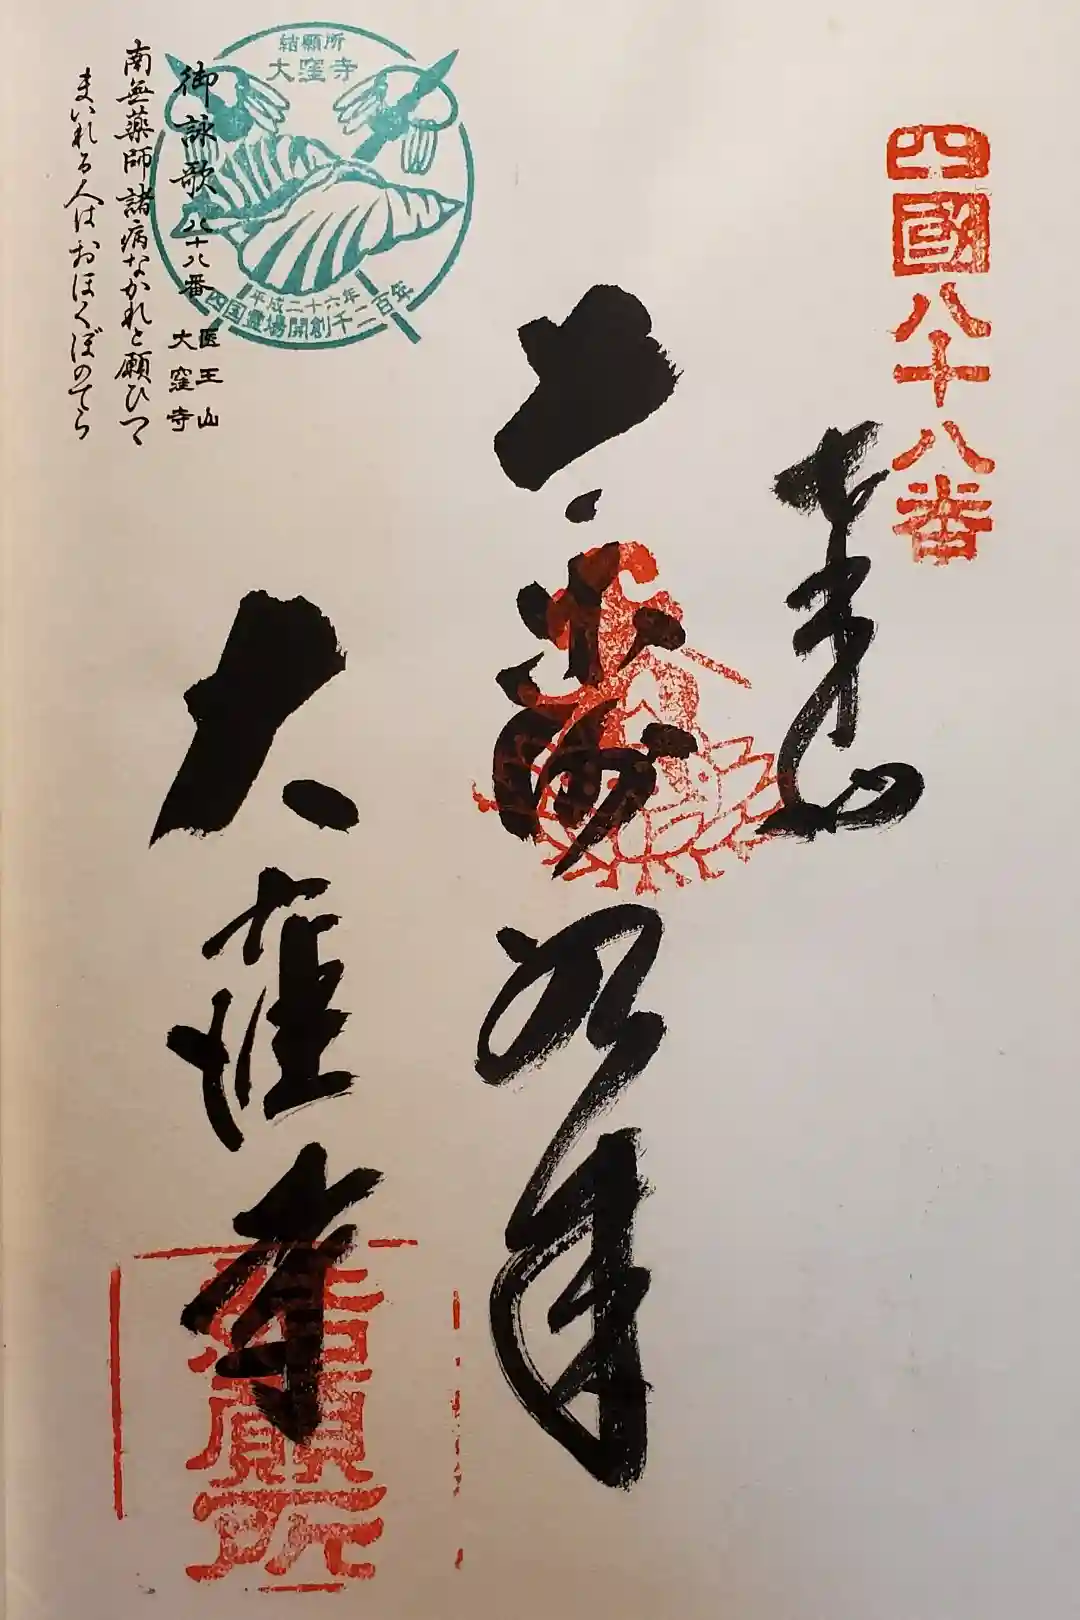 四國八十八番
奉
大
如来
大窪寺
結願所
結願所
大窪寺
平成二十六年
四国霊場開創千二百年
御詠歌 八十八番 医王山
大窪寺
南無薬師諸病なかれと願ひつゝ
まいれる人はおほくぼのてら